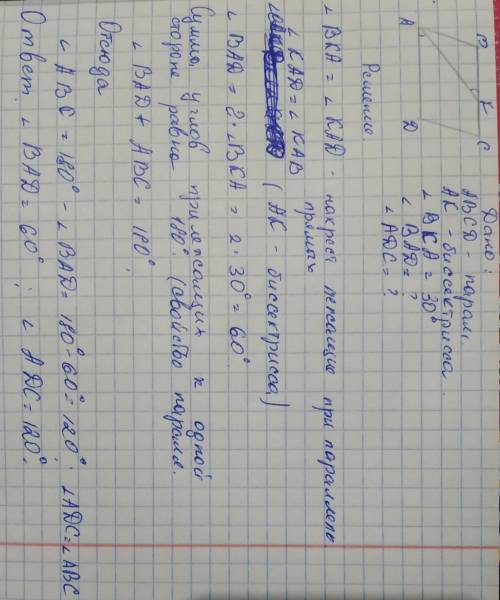 A
B
K
C
D
Дано:
ABCD - парал.
AK - биссектрисса
∠ BKA = 30°
∠ BAD = ?
∠ ADC = ?
Решение.
∠ BKA = ∠ KAD - накрест лежащие при параллель
прямых
∠ KAD = ∠ KAB (AK - биссектрисса)
∠ BAD = 2·∠ BKA = 2·30° = 60°
Сумма углов прилежащих к одной
стороне равна 180° (свойство паралл.
∠ BAD + ABC = 180°
Отсюда
∠ ABC = 180° - ∠ BAD = 180°-60° = 120°; ∠ADC = ∠ABC
Ответ: ∠ BAD = 60°; ∠ ADC = 120°.